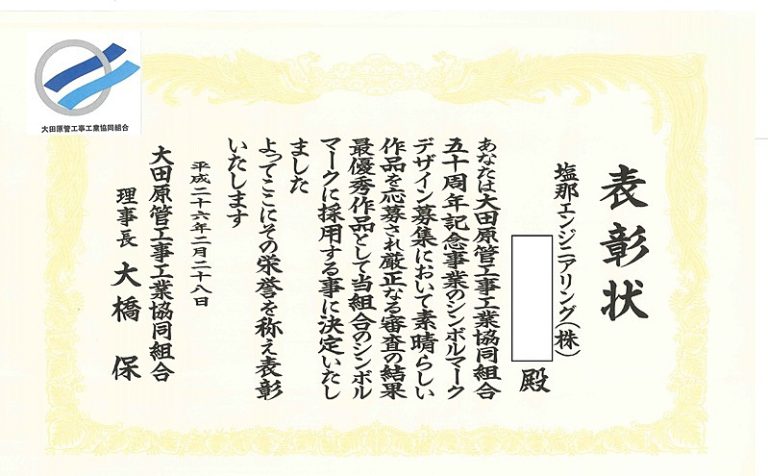 表彰状
塩那エンジニアリング(株)
殿
あなたは大田原管工事工業協同組合
五十周年記念事業のシンボルマーク
デザイン募集において素晴らしい
作品を応募され厳正なる審査の結果
最優秀作品として当組合のシンボル
マークに採用する事に決定いたし
ました
よってここにその栄誉を称え表彰
いたします
平成二十六年二月二十八日
大田原管工事工業協同組合
理事長 大橋 保
大田原管工事工業協同組合